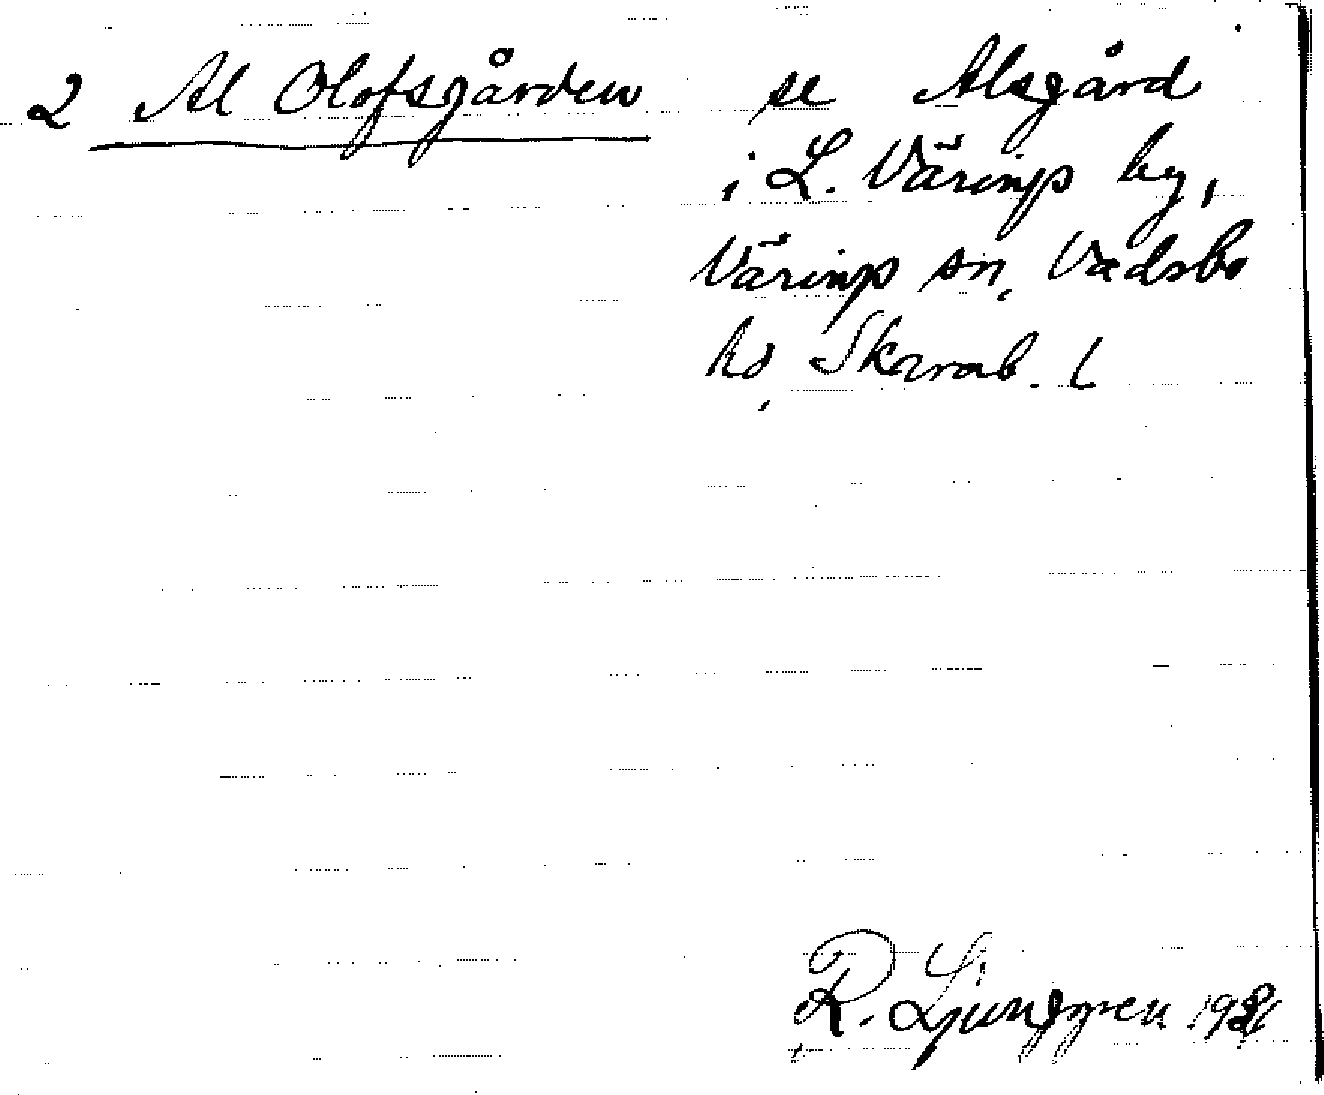 2 Al Olofsgården se Alsgård
i L. Värings by,
Värings sn, Vadsbo
hd, Skarab. l
R. Ljunggren